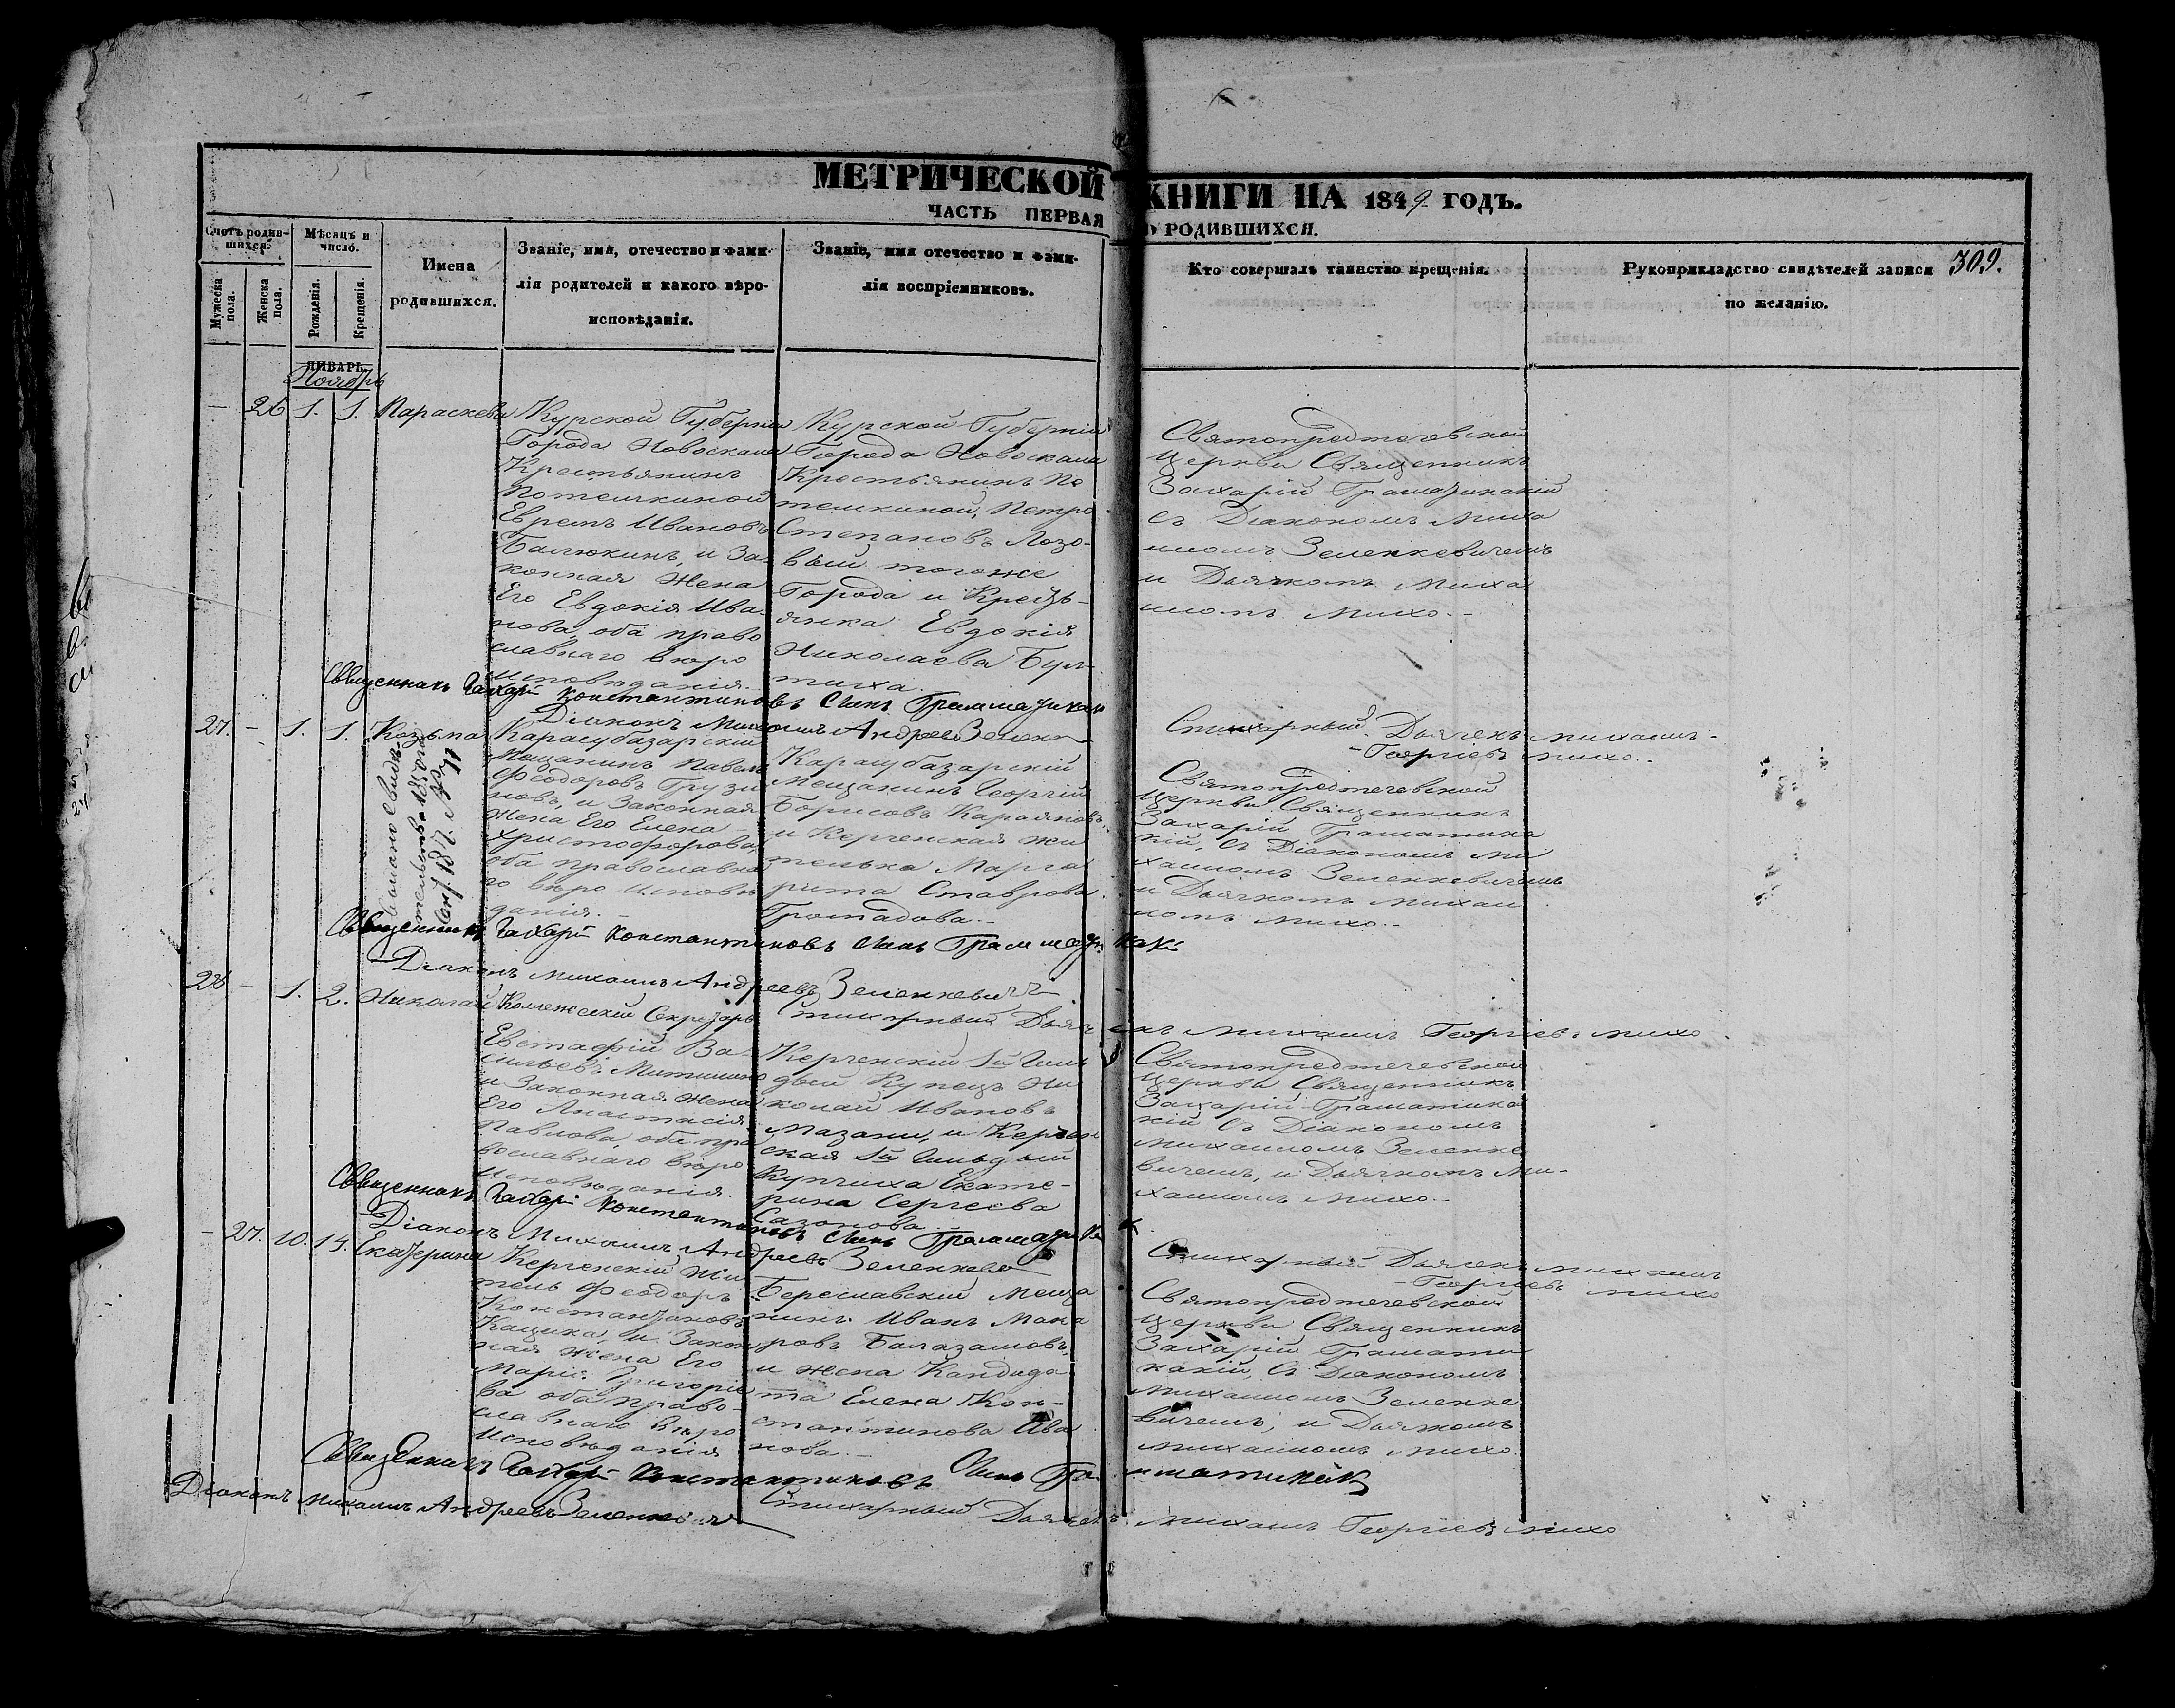 МЕТРИЧЕСКОЙ КНИГИ НА 1849 ГОДЪ.
ЧАСТЬ ПЕРВАЯ О РОДИВШИХСЯ.
309.
Счетъ родившихся.
Мужеска пола.
Женска пола.
Мѣсяцъ и число.
Рожденія.
Крещенія.
Имена
родившихся.
Званіе, имя, отечество и фами-
лія родителей и какого вѣро-
исповѣданія.
Званіе, имя отечество и фами-
лія воспріемниковъ.
Кто совершалъ таинство крещенія.
Рукоприкладство свидѣтелей записи
по желанію.
ЯНВАРЬ
Ноябрь
— 26 1. 1. Параскева
Курской Губерніи
Города Новоскола
Крестьянинъ
Потемкиной
Ефремъ Ивановъ
Балюкинъ, и За-
конная Жена
Его Евдокія Ива-
нова, оба право
славнаго веро
исповеданія.
Курской Губерніи
Города Новоскола
Крестьянинъ По
темкиной, Петро
Степановъ Лозо-
вый тогоже
Города и Кресть-
янка Евдокія
Николаева
Святопредтечевской
Церкви Священникъ
Захарій Граматикакій
съ Діакономъ Миха
иломъ Зеленкевичемъ
и Дьячкомъ Миха
иломъ Михо.-
Священникъ Захарій Константиновъ Сынъ
Діаконъ Михаилъ Андреевъ
Стихарный Дьячекъ Михаилъ
Георгіевъ Михо.
27. — 1. 1. Козьма
Карасубазарскій
Мещанинъ Павелъ
Феодоровъ Грузи
новъ, и Законная
Жена Его Елена
Христофорова,
оба православна
го веро исповѣ
данія.-
Карасубазарскій
Мещанинъ Георгій
Борисовъ
и Керченская жи
телька Марга
рита Ставрова
Громадова.-
Святопредтечевской
Церкви Священникъ
Захарій Граматика
кій, съ Діакономъ Ми
хаиломъ Зеленкевичемъ
и Дьячкомъ Михаи
ломъ Михо.-
Священникъ Захарій Константиновъ Сынъ
Діаконъ Михаилъ Андреевъ Зеленкевичъ
28 — 1. 2. Николай
Колежскій Секретарь
Евстафій Ва-
сильевъ
и Законная Жена
Его Анастасія
Павлова, оба пра
вославнаго веро
исповѣданія.
Стихарный Дьячекъ Михаилъ Георгіевъ Михо
Керченскій 1й Гиль
дый Купецъ Ни
колай Ивановъ
Мазани, и Керчен
ская 1й Гильдый
Купчиха Екате-
рина Сергеева
Сазонова
Святопредтечевской
Церкви Священникъ
Захарій Граматика
кій Съ Діакономъ
Михаиломъ Зеленке
вичемъ, и Дьячкомъ Ми-
хаиломъ Михо.-
Священникъ Захарій Константиновъ Сынъ
Діаконъ Михаилъ Андреевъ
— 27. 10. 14. Екатерина
Керченскій Жи
тель Феодоръ
Константиновъ
Кацика, и Закон
ная Жена Его
Марія Григорье
ва оба право-
славнаго веро
исповѣданія
Бериславский Меща
нинъ Иванъ Мака
ровъ
и Жена Кандида
та Елена Кон-
стантинова Ива
нова.-
Стихарный Дьячекъ Михаилъ
Георгіевъ Михо
Святопредтечевской
Церкви Священникъ
Захарій Грамати
какій, Съ Діакономъ
Михаиломъ Зеленке
вичемъ, и Дьячкомъ
Михаиломъ Михо.
Священникъ Захарій Константиновъ Сынъ
Діаконъ Михаилъ Андреевъ
Стихарный Дьячекъ Михаилъ Георгіевъ Михо